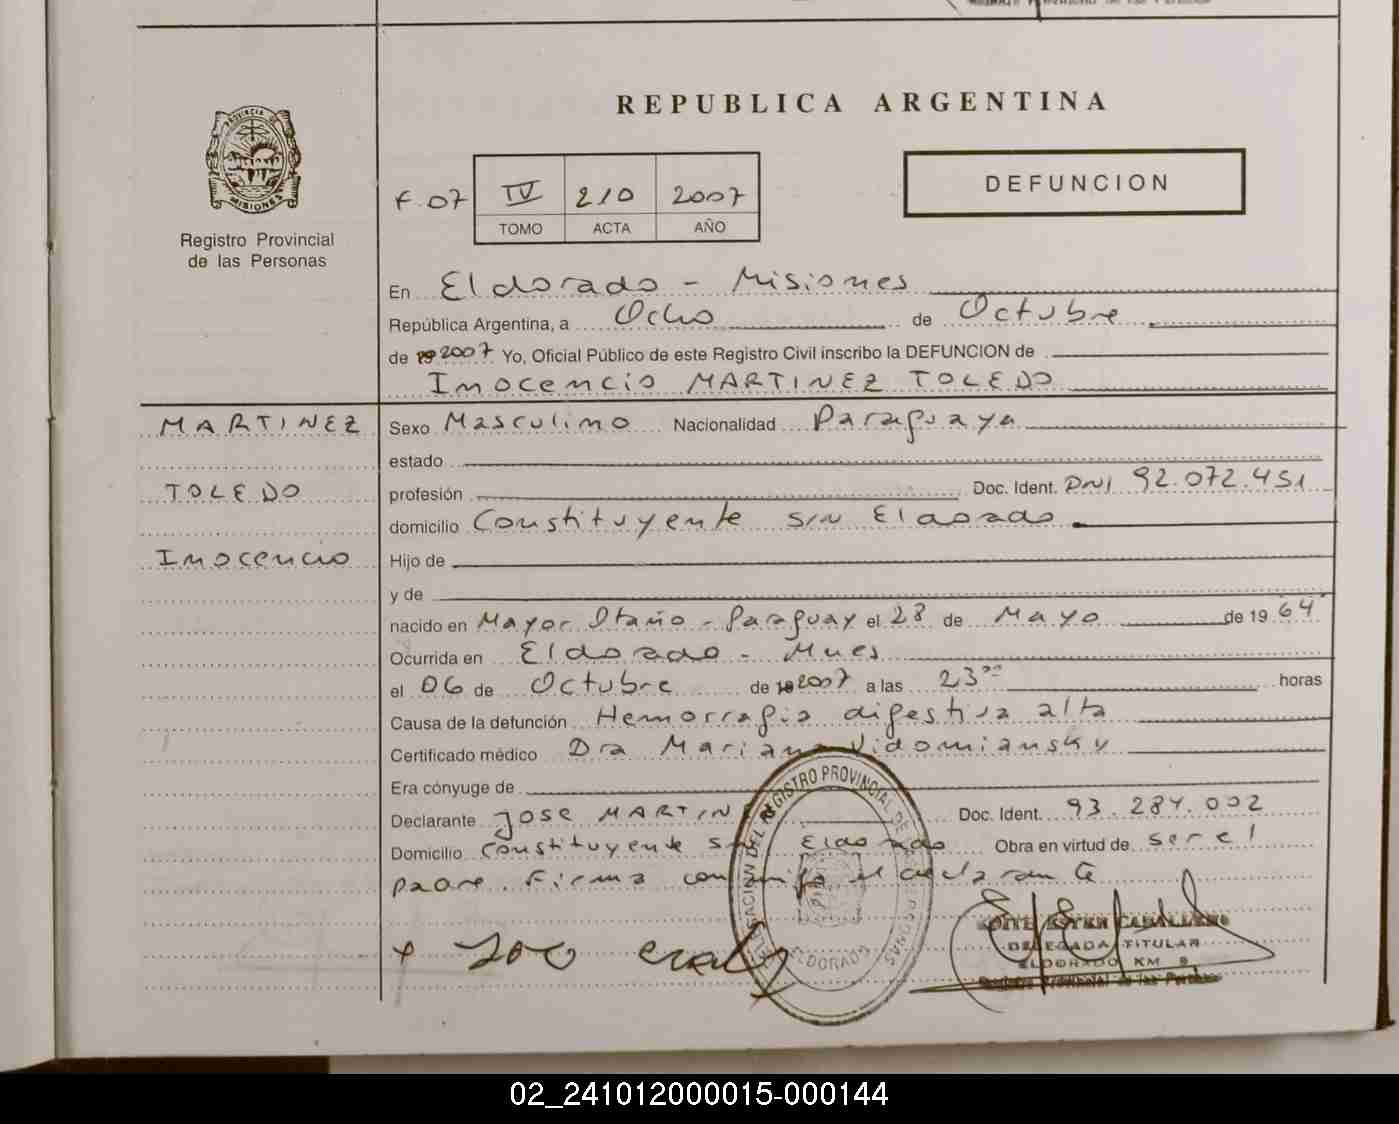 REPUBLICA ARGENTINA
PROVINCIA DE
MISIONES
Registro Provincial
de las Personas
DEFUNCION
F. 07 IV 210 2007
TOMO ACTA AÑO
En Eldorado - Misiones
República Argentina, a Ocho de Octubre
de 19 2007 Yo, Oficial Público de este Registro Civil inscribo la DEFUNCION de
Inocencio MARTINEZ TOLEDO
MARTINEZ
TOLEDO
Inocencio
Sexo Masculino Nacionalidad Paraguaya
estado
profesión Doc. Ident. DNI 92.072.451
domicilio Constituyente S/N Eldorado
Hijo de
y de
nacido en Mayor Otaño - Paraguay el 28 de Mayo de 19 64
Ocurrida en Eldorado - Mnes
el 06 de Octubre de 19 2007 a las 23 00 horas
Causa de la defunción Hemorragia digestiva alta
Certificado médico Dra Mariana Vidomiansky
Era cónyuge de
Declarante JOSE MARTIN Doc. Ident. 93.284.002
Domicilio Constituyente S/N Eldorado Obra en virtud de ser el
padre. Firma conmigo el declarante
DELEGACION DEL REGISTRO PROVINCIAL DE LAS PERSONAS
ELDORADO
CABALLERO
DELEGADA TITULAR
ELDORADO KM 9
Registro Provincial de las Personas
02_241012000015-000144